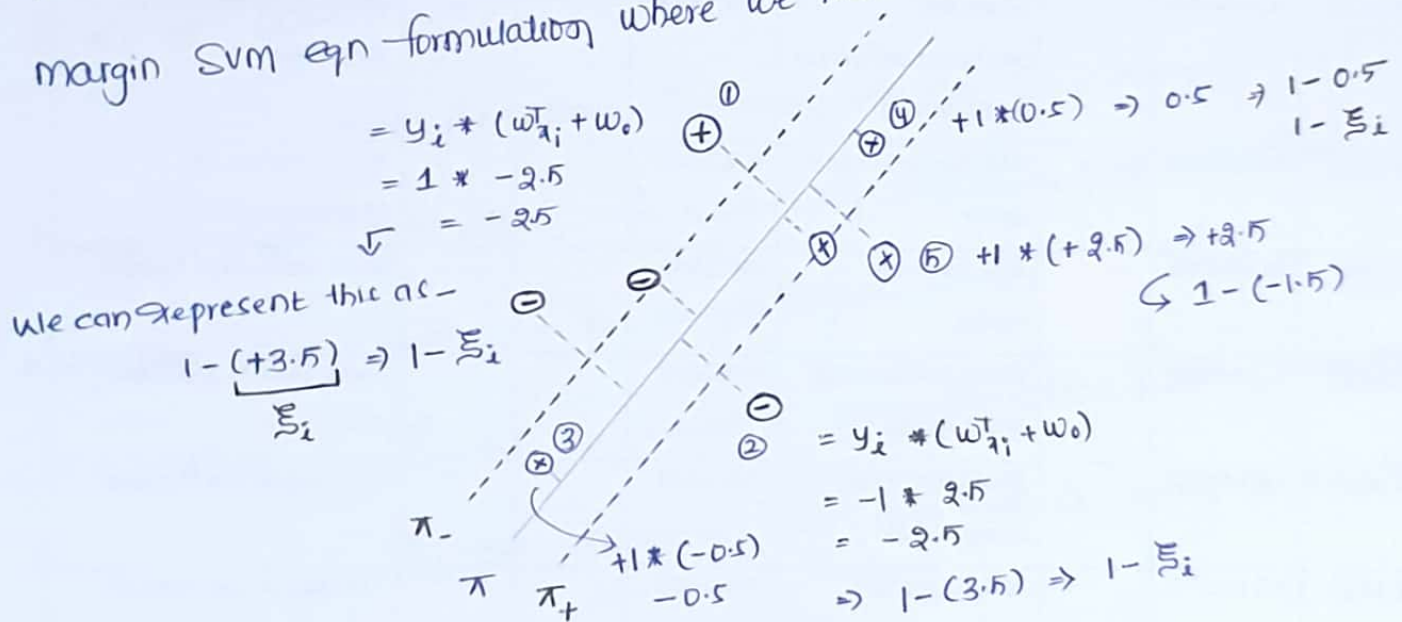 margin SVM eqn formulation where we
①
= yᵢ * (wᵀxᵢ + w₀)
= 1 * -2.5
= -2.5
We can represent this as -
1 - (+3.5) ⇒ 1 - ξᵢ
ξᵢ
④ +1 * (0.5) ⇒ 0.5 ⇒ 1 - 0.5
1 - ξᵢ
⑤ +1 * (+2.5) ⇒ +2.5
↳ 1 - (-1.5)
②
= yᵢ * (wᵀxᵢ + w₀)
= -1 * 2.5
= -2.5
⇒ 1 - (3.5) ⇒ 1 - ξᵢ
③
+1 * (-0.5)
-0.5
π₋
π
π₊